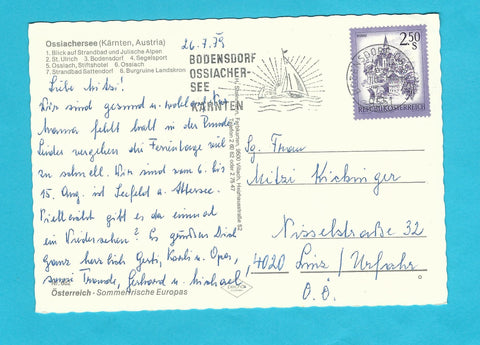 Ossiachersee (Kärnten, Austria)
1. Blick auf Strandbad und Julische Alpen
2. St. Ulrich 3. Bodensdorf 4. Segelsport
5. Ossiach, Stiftshotel 6. Ossiach
7. Strandbad Sattendorf 8. Burgruine Landskron
26.7.79
BODENSDORF
OSSIACHER-
SEE
KÄRNTEN
2.50
S
REPUBLIK ÖSTERREICH
Liebe Mitzi!
Wir sind gesund u. wohlauf. Nur
Mama fehlt halt in der Runde.
Leider vergehen die Ferientage viel
zu schnell. Wir sind vom 6. bis
15. Aug. in Seefeld a. Attersee.
Vielleicht gibt es da einmal
ein Wiedersehen? Es grüßen Dich
ganz herzlich Gerti, Karli u. Opa,
sowie Traude, Gerhard u. Michael
Österreich - Sommerfrische Europas
9500 Villach
Sg. Frau
Mitzi Kirchinger
Nisselstraße 32
4020 Linz / Urfahr
O.Ö.